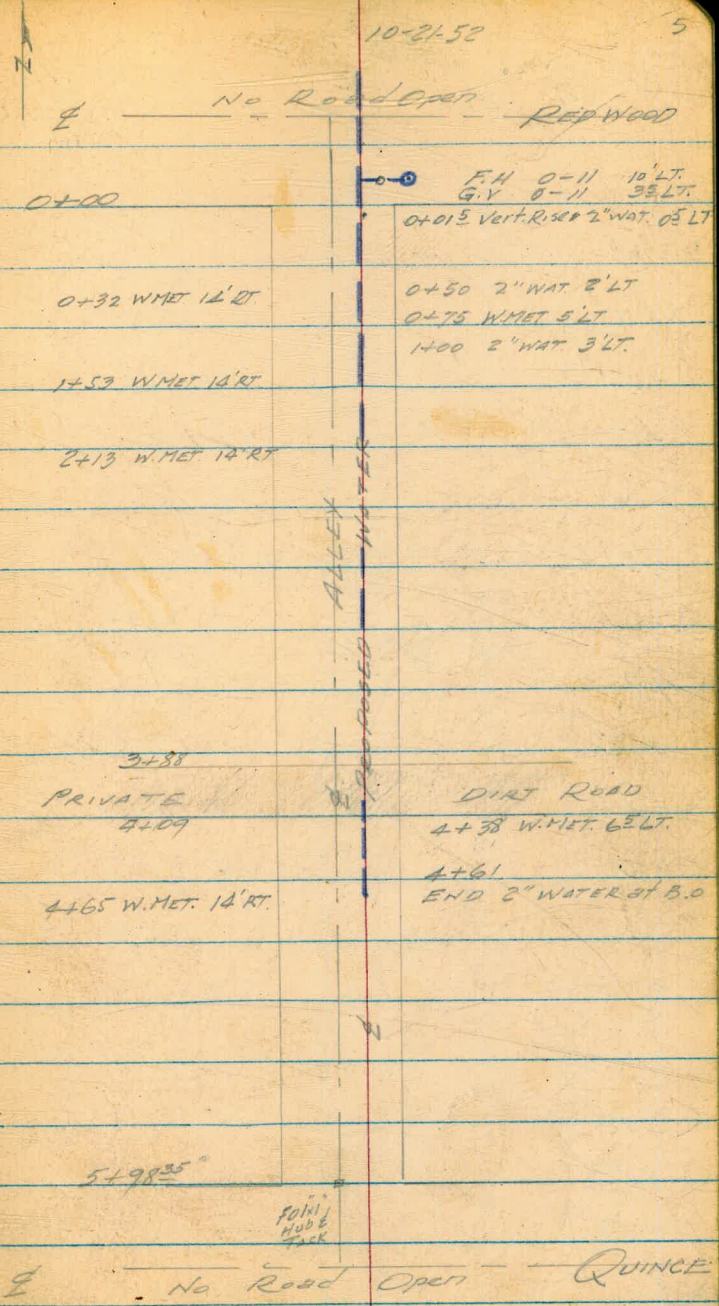 10-21-52
5
N
No Road Open
℄ REDWOOD
F.H 0-11 10' LT.
G.V 0-11 3⁵ LT.
0+00
0+01⁵ Vert. Riser 2" WAT. 0⁵ LT
0+32 W.MET 14' RT.
0+50 2" WAT. 2' LT
0+75 W.MET 5' LT
1+00 2" WAT. 3' LT.
1+53 W.MET 14' RT.
2+13 W.MET. 14' RT
ALLEY
℄
PROPOSED WATER
3+88
PRIVATE DIRT ROAD
4+09
4+38 W.MET. 6⁵ LT.
4+61
END 2" WATER at B.O
4+65 W.MET. 14' RT.
℄
5+98³⁵
Fd 1"x1"
Hub &
Tack
℄ No Road Open QUINCE